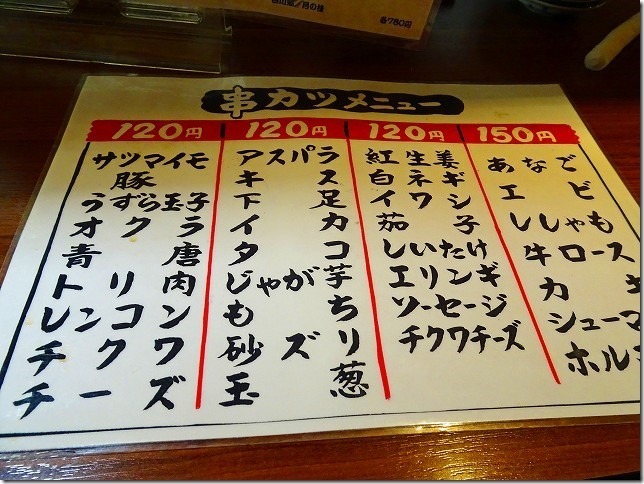 各780円
串カツメニュー
120円
サツマイモ
豚
うずら玉子
オクラ
青唐
トリ肉
レンコン
チクワ
チーズ
120円
アスパラ
キス
下足
イカ
タコ
じゃが芋
もち
砂ズリ
玉葱
120円
紅生姜
白ネギ
イワシ
茄子
しいたけ
エリンギ
ソーセージ
チクワチーズ
150円
あなご
エビ
ししゃも
牛ロース
カキ
シューマ
ホル